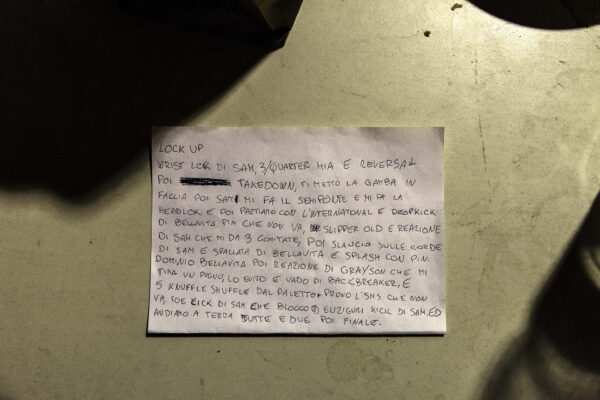 LOCK UP
WRIST LOK DI SAM, 3/QUARTER MIA E REVERSAL
POI TAKEDOWN, TI METTO LA GAMBA IN
FACCIA POI SAM MI FA IL SEMIPONTE E MI FA LA
HEADLOK E POI PARTIAMO CON L'INTERNATIONAL E DROPKICK
DI BELLAVITA, PIN CHE NON VA, SLIPPER OLD E REAZIONE
DI SAM CHE MI DA 3 GOMITATE, POI SLANCIO SULLE CORDE
DI SAM E SPALLATA DI BELLAVITA E SPLASH CON PIN.
DOMINIO BELLAVITA POI REAZIONE DI GRAYSON CHE MI
TIRA UN PUGNO, LO EVITO E VADO DI BACKBREAKER, E
5 KNUFFLE SHUFFLE DAL PALETTO + PROVO L' CHE NON
VA, TOE KICK DI SAM CHE BLOCCO E ENZIGUIRI KICK DI SAM ED
ANDIAMO A TERRA TUTTE E DUE POI FINALE.